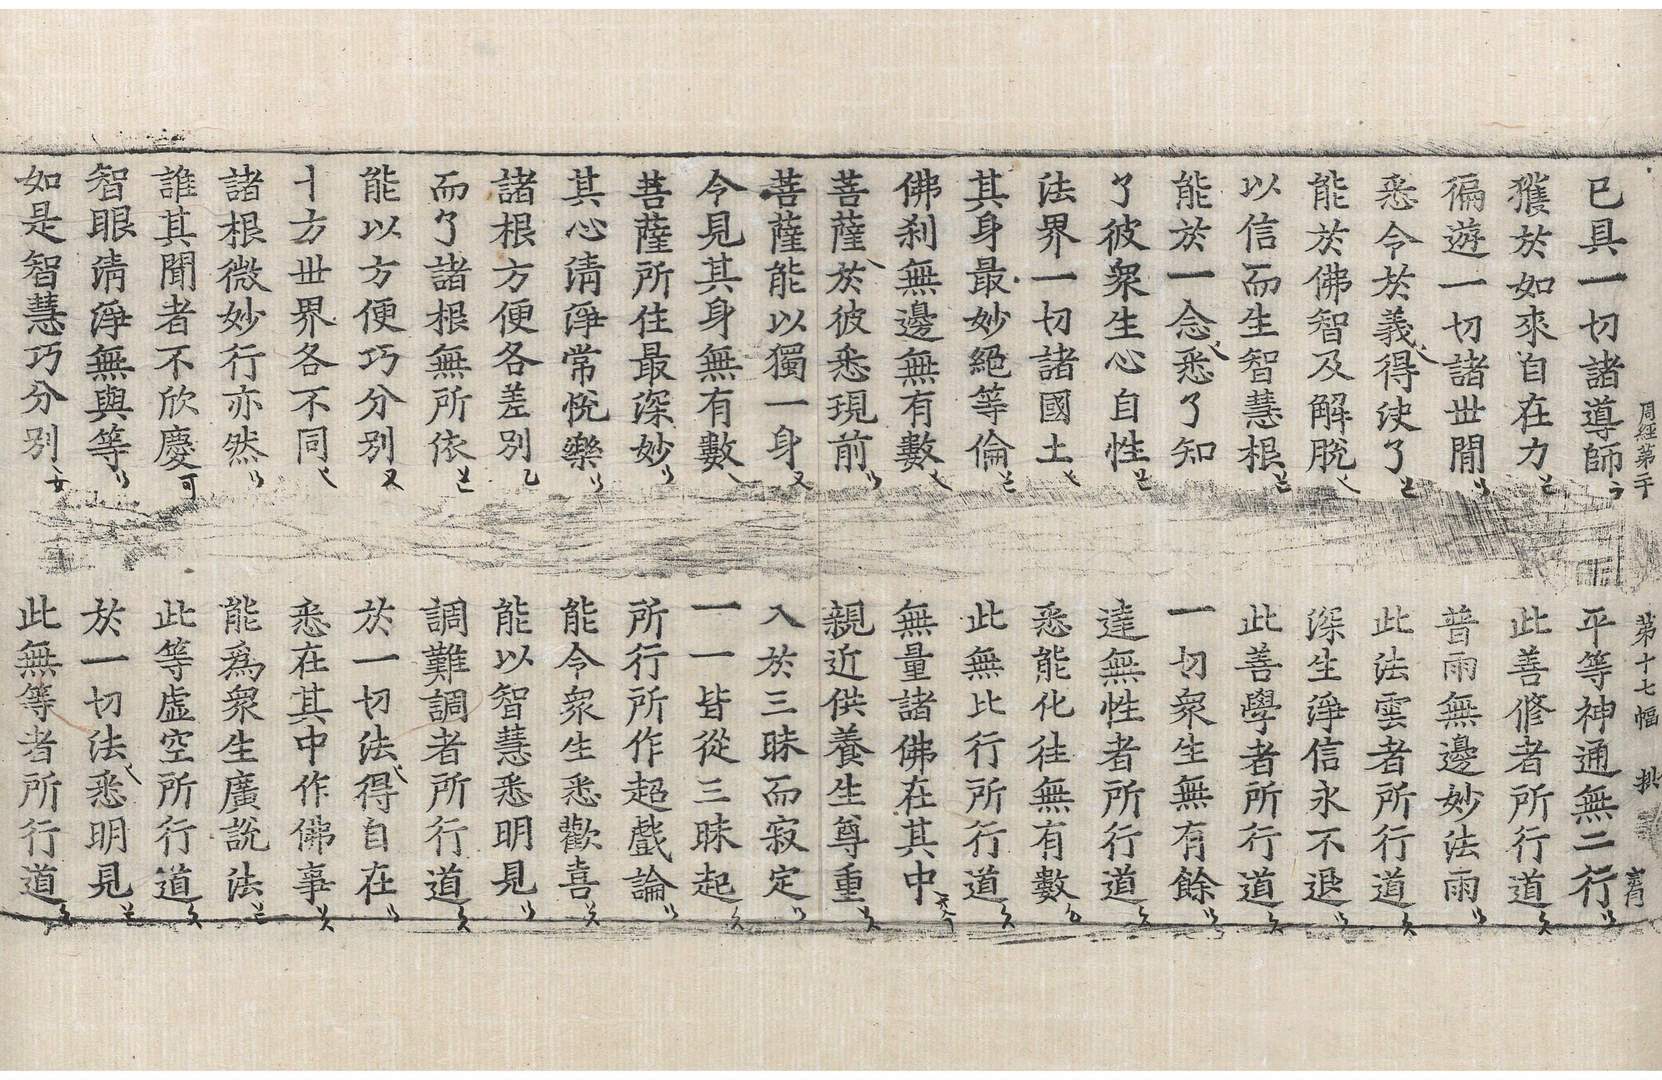 周經第二十 第十七幅
已具一切諸導師 平等神通無二行
獲於如來自在力 此善修者所行道
徧遊一切諸世間 普雨無邊妙法雨
悉令於義得決了 此法雲者所行道
能於佛智及解脫 深生淨信永不退
以信而生智慧根 此善學者所行道
能於一念悉了知 一切衆生無有餘
了彼衆生心自性 達無性者所行道
法界一切諸國土 悉能化往無有數
其身最妙絕等倫 此無比行所行道
佛刹無邊無有數 無量諸佛在其中
菩薩於彼悉現前 親近供養生尊重
菩薩能以獨一身 入於三昧而寂定
令見其身無有數 一一皆從三昧起
菩薩所住最深妙 所行所作超戲論
其心淸淨常悅樂 能令衆生悉歡喜
諸根方便各差別 能以智慧悉明見
而了諸根無所依 調難調者所行道
能以方便巧分別 於一切法得自在
十方世界各不同 悉在其中作佛事
諸根微妙行亦然 能爲衆生廣說法
誰其聞者不欣慶 此等虛空所行道
智眼淸淨無與等 於一切法悉明見
如是智慧巧分別 此無等者所行道